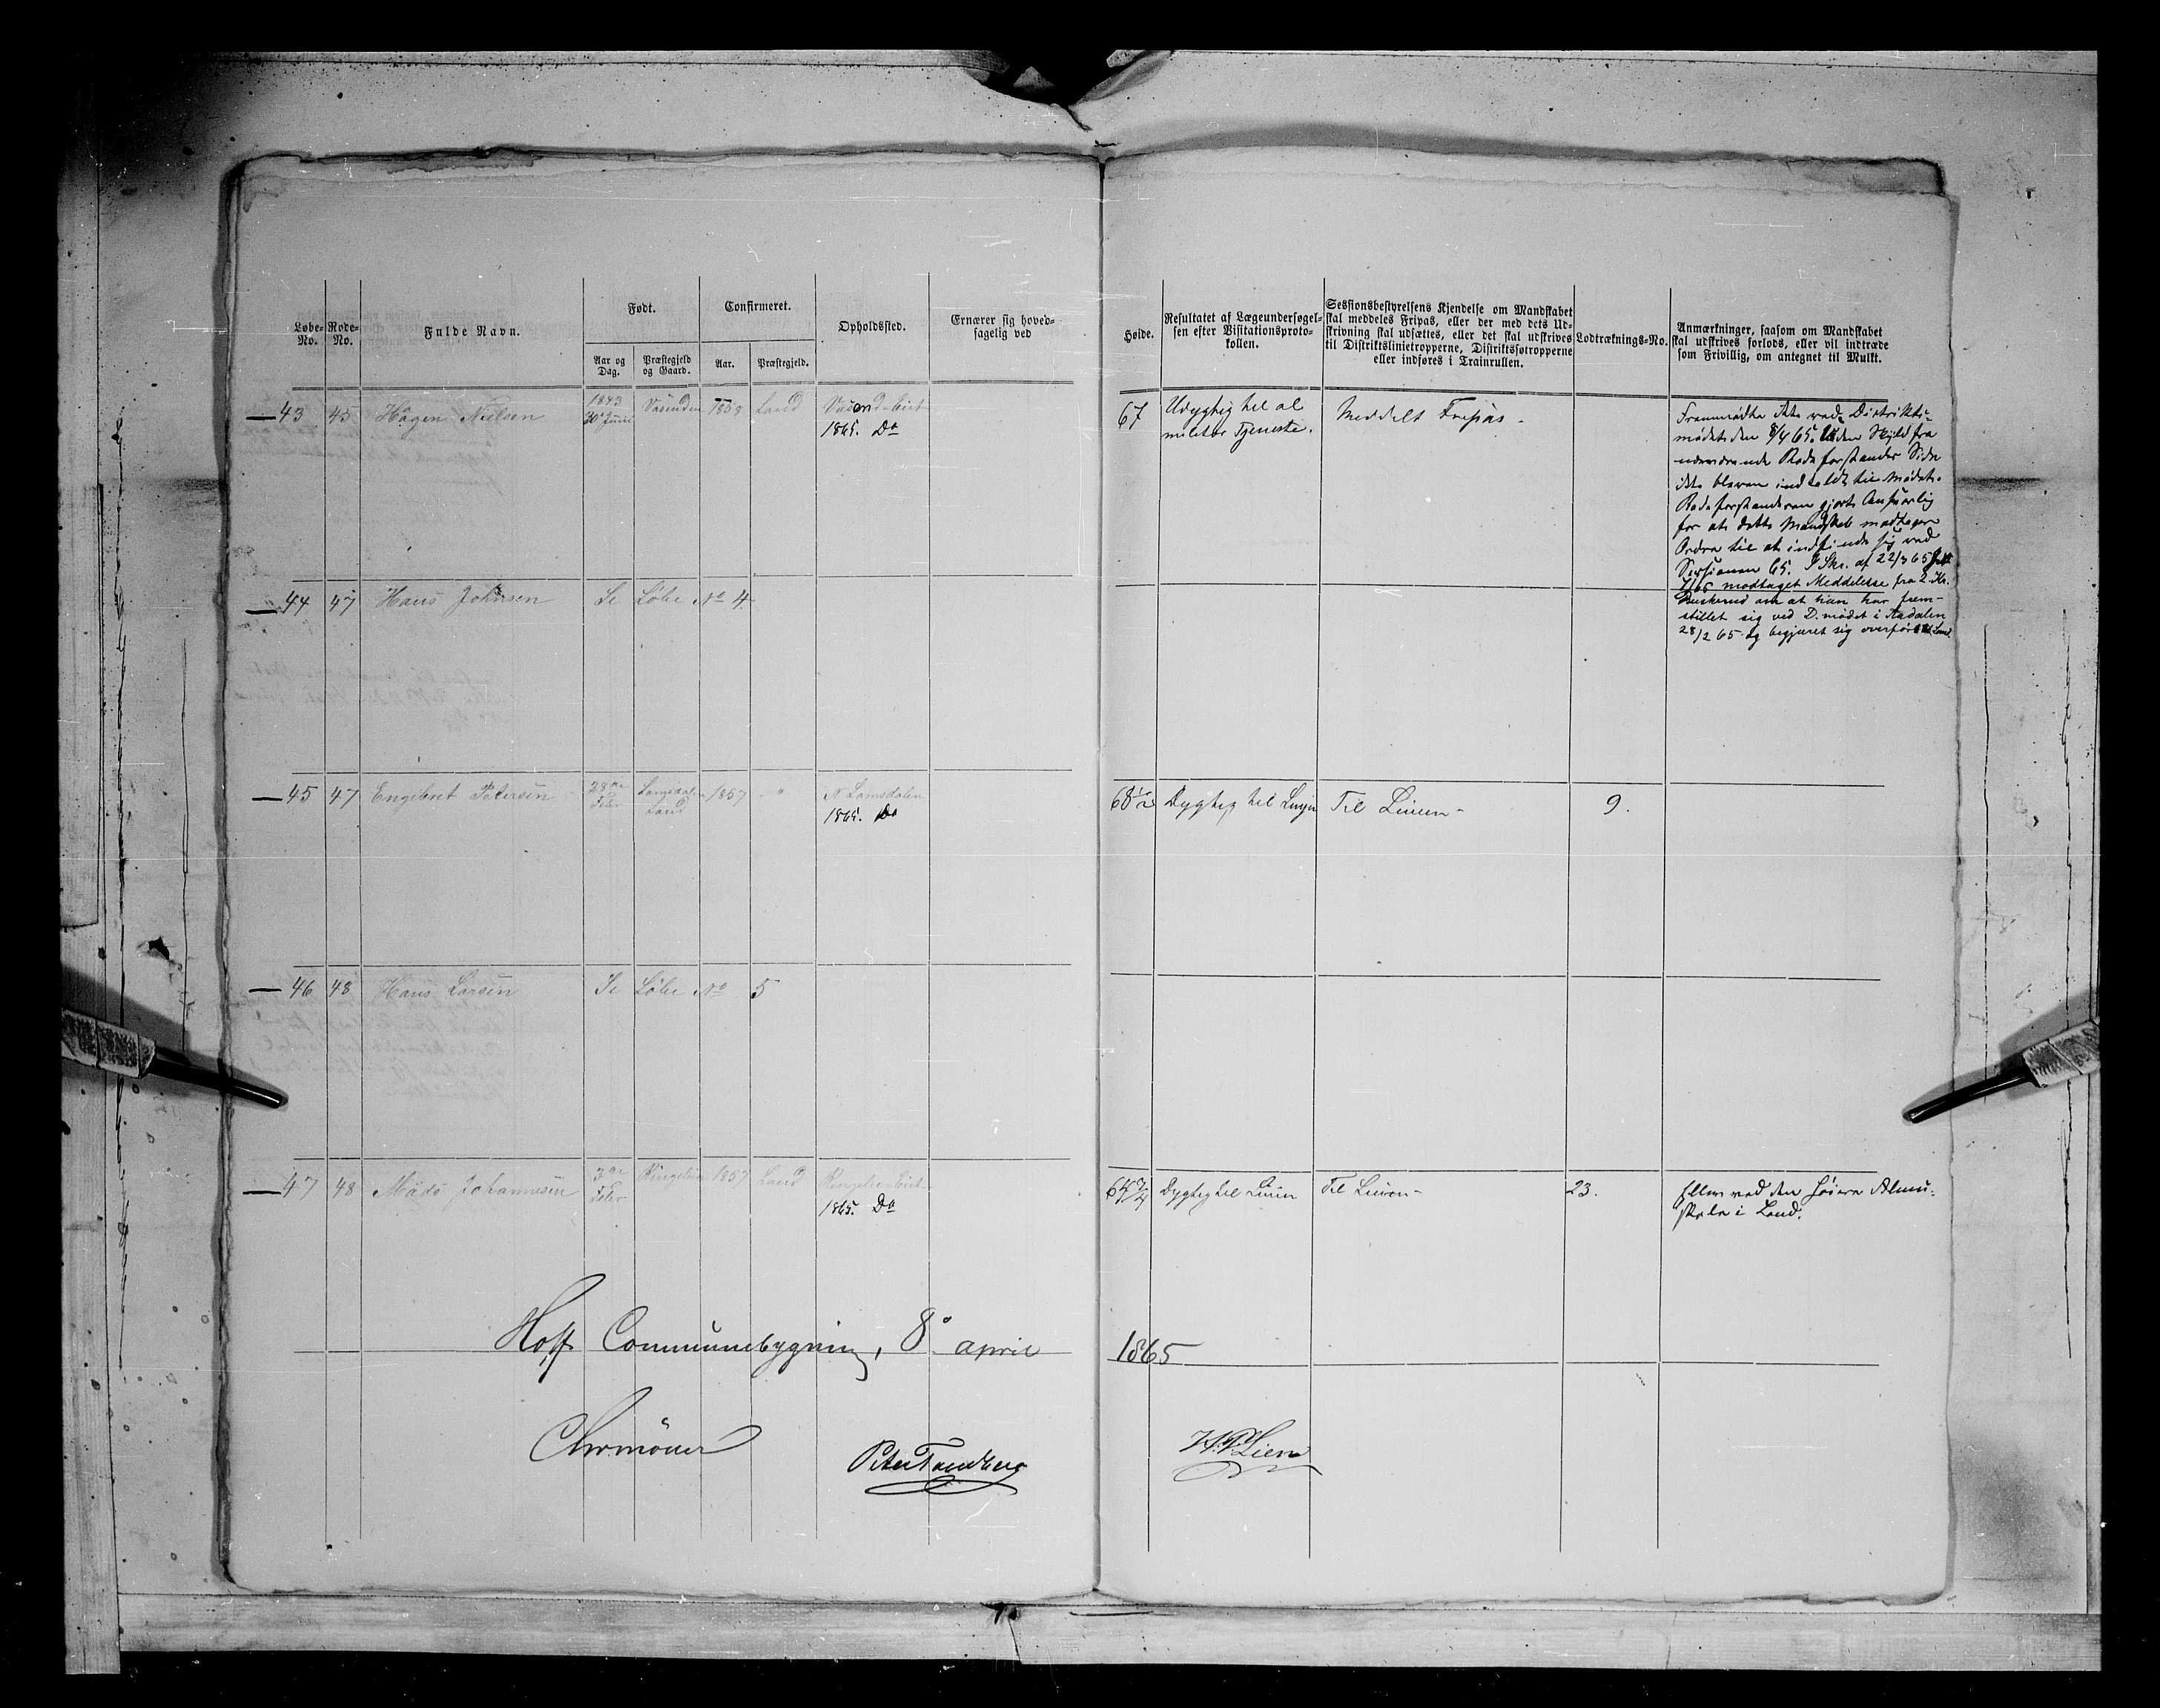 Løbe-No. Rode-No. Fulde Navn. Født. Confirmeret. Opholdssted. Ernærer sig hovedsagelig ved
Aar og Dag. Præstegjeld og Gaard. Aar. Præstegjeld.
Høide. Resultatet af Lægeundersøgelsen efter Visitationsprotokollen. Sessionsbestyrelsens Kjendelse om Mandskabet skal meddeles Fripas, eller der med dets Udskrivning skal udsættes, eller det skal udskrives til Distriktslinietropperne, Distriktsøtropperne eller indføres i Trainrullen. Lodtræknings-No. Anmærkninger, saasom om Mandskabet skal udskrives forlods, eller vil indtræde som Frivillig, om antegnet til Mulkt.
43 45 Hågen Nielsen 1843 30 Juni Vasenden 1858 Land
1865. Do
67 Udygtig til al
militær Tjeneste.
Meddelt Fripas.
Fremmødte ikke ved Distrikts-
mødet den 8/4 65. Uden Skyld fra
Rodeforstander Side
ikke bleven indkaldt til Mødet.
Rodeforstanderen gjort Ansvarlig
for at dette Mandskab modtager
Ordre til at indfinde sig ved
Sessionen 65. I Skr. af 22/3 65
modtaget Meddelelse fra
Buskerud om at han har frem-
stillet sig ved D.mødet i Aadalen
28/2 65 og begjæret sig overført til Land.
44 47 Hans Johnsen Se Løbe No 4
45 47 Engebret Petersen 28de Febr Lomsdalen Land 1857 " N. Lomsdalen
1865. Do
68 1/2 Dygtig til Linjen Til Linien - 9.
46 48 Hans Larsen Se Løbe No 5
47 48 Mads Johannesen 3de Febr Ringelien 1857 Land
1865. Do
Dygtig til Linien Til Linien - 23.
Elev ved den høiere Almu-
skole i Land.
Hoff Communebygning, 8de april 1865
Peter Tandberg
H. P. Lien